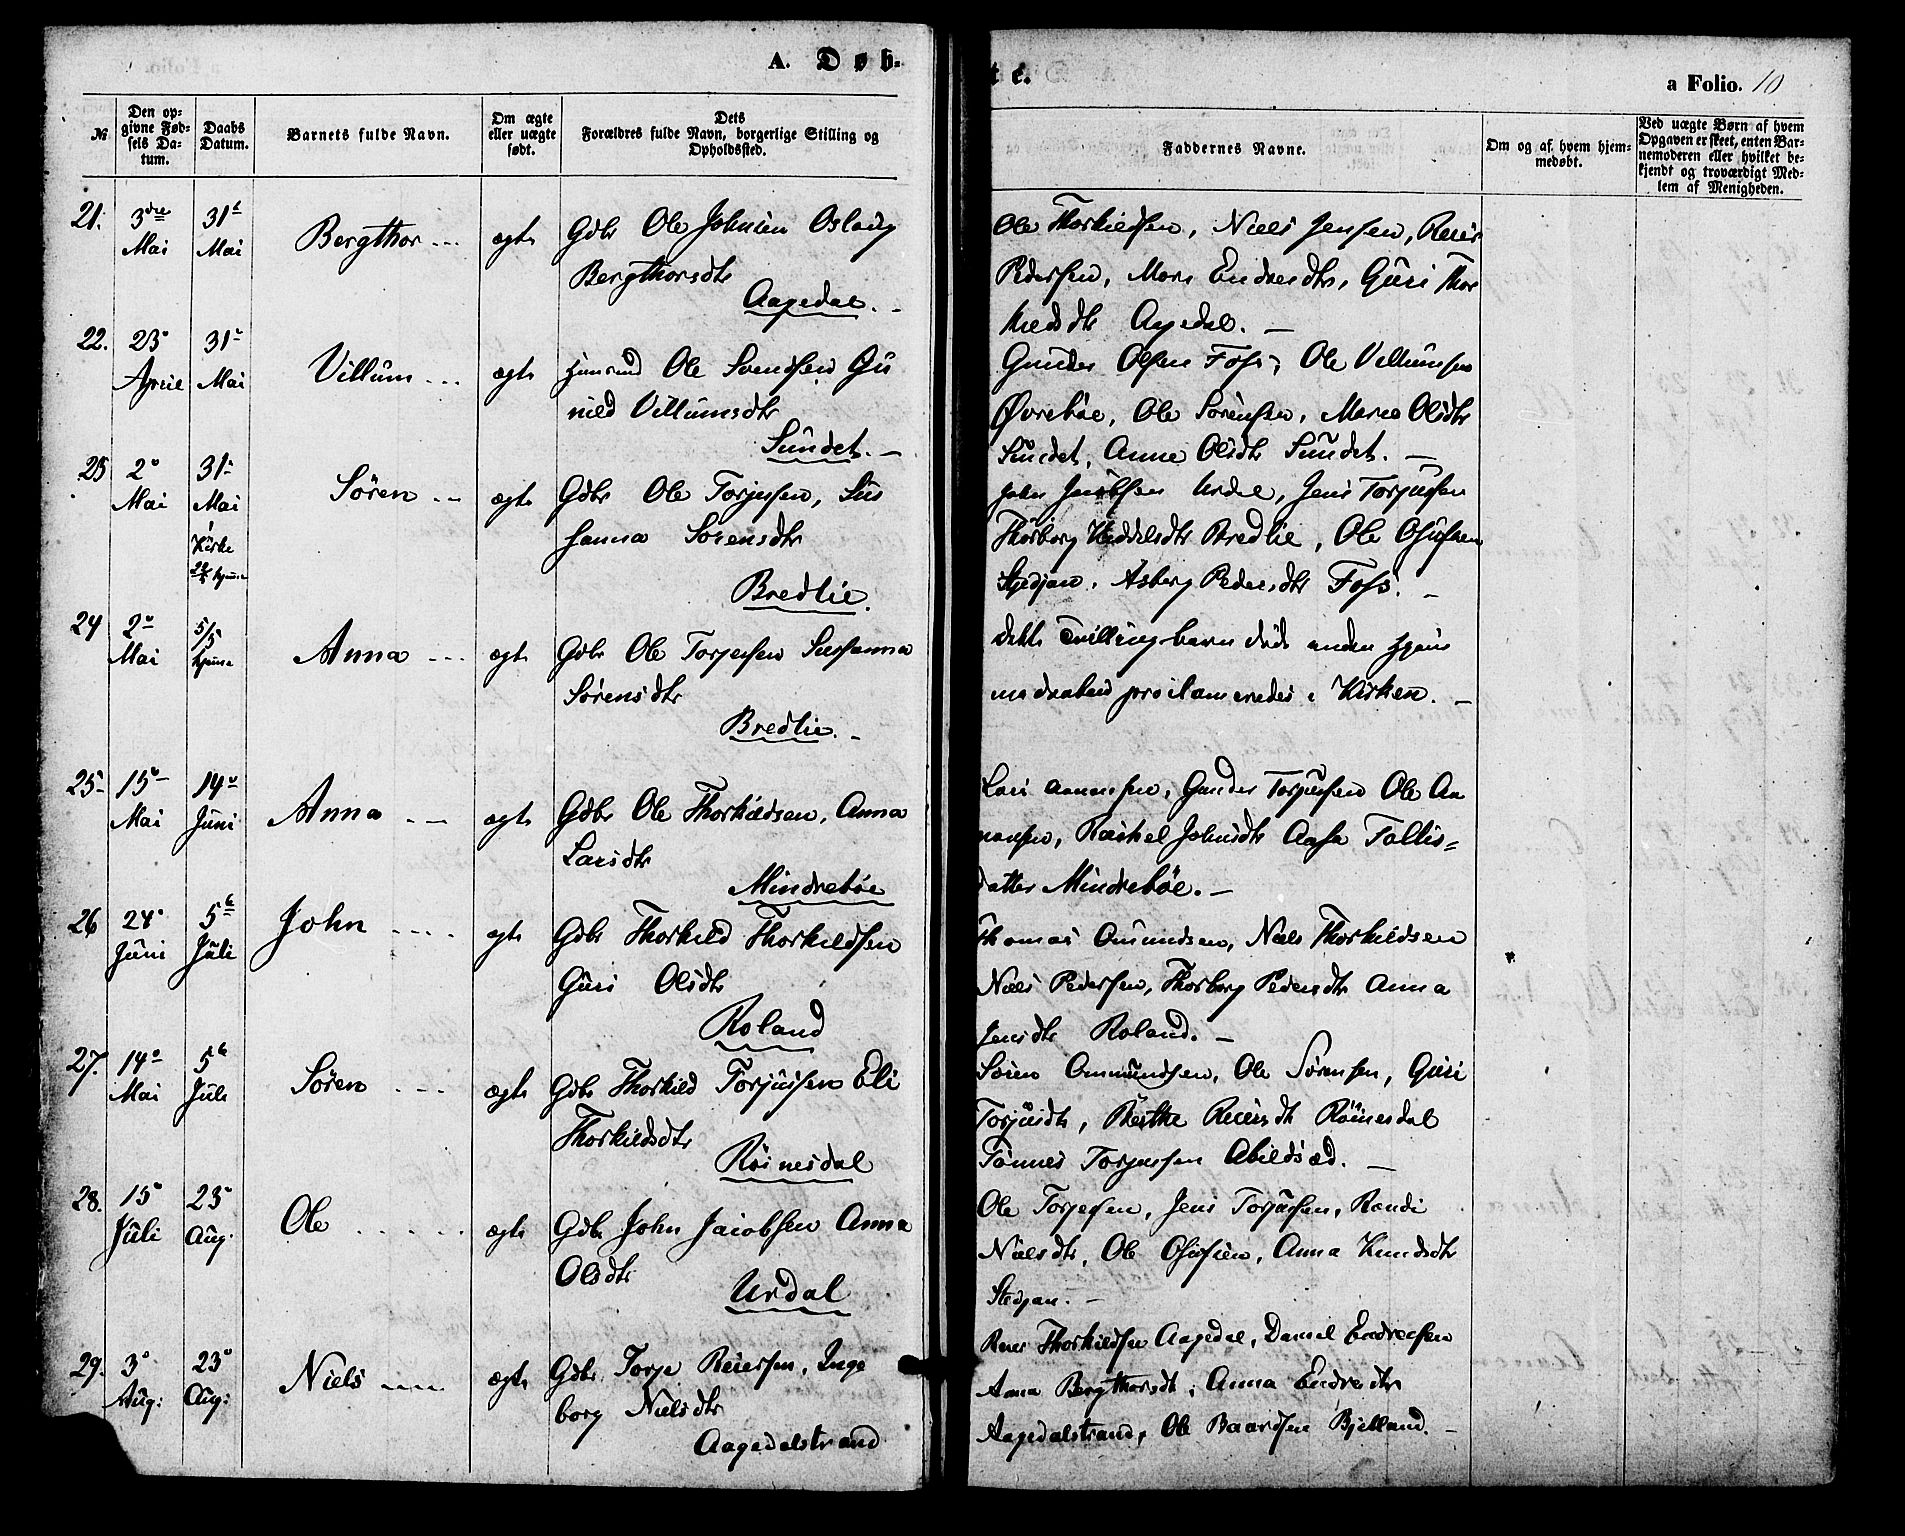 A. Døb-
t e.
a Folio. 10
№
Den op-
givne Fød-
sels Da-
tum.
Daabs
Datum.
Barnets fulde Navn.
Om ægte
eller uægte
født.
Dets
Forældres fulde Navn, borgerlige Stilling og
Opholdssted.
Faddernes Navne.
Om og af hvem hjem-
medøbt.
Ved uægte Børn af hvem
Opgaven er skeet, enten Bar-
nemoderen eller hvilket be-
kjendt og troværdigt Med-
lem af Menigheden.
21. 3die Mai 31t Mai Bergthor ægte Gdbr Ole Johnsen Oslaug
Bergthorsdtr
Aagedal.
Ole Thorkildsen, Niels Jensen, Reier
Pedersen, Maren Endresdtr, Guri Thor
kildsdtr Agedal.
22. 23 April 31 Mai Villum ægte Ole Svendsen Gu
nild Villumsdtr
Sundet.
Gunder Olsen Foss, Ole Villumsen
Øvrebøe, Ole Sørensen, Maren Olsdtr
Sundet, Anne Olsdtr Sundet.
23 2 Mai 31 Mai i Kirke hjemme Søren ægte Gdbr Ole Torjussen, Sus
sanna Sørensdtr
Bredlie.
John Jacobsen Urdal, Jens Torjussen
Thorborg Bredlie, Ole
Stedjan, Asberg Pedersdtr Foss.
24 2 Mai 5/5 hjemme Anna ægte Gdbr Ole Torjussen Sussanna
Sørensdtr
Bredlie.
dette Tvillingbarn døde inden hjem
medaaben proclameredes i Kirken.
25 15 Mai 14 Juni Anna ægte Gdbr Ole Thorkildsen, Anna
Larsdtr
Mindrebøe
Lars Aanensen, Gunder Torjussen Ole Aa
nensen, Rachel Johnsdtr Aase Tallis-
datter Mindrebøe.
26 24 Juni 5te Juli John ægte Gdbr Thorkild Thorkildsen
Guri Olsdtr
Roland
Thomas Omundsen, Niels Thorkildsen
Niels Pedersen, Thorborg Pedersdtr Anna
Jensdtr Roland.
27. 14 Mai 5te Juli Søren ægte Gdbr Thorkild Torjussen Eli
Thorkildsdtr
Røinesdal
Søren Ommundsen, Ole Sørensen, Guri
Torjusdtr, Berthe Reiersdtr Røinesdal
Tønnes Torjussen Abildsæd.
28. 15 Juli 23 Aug. Ole ægte Gdbr John Jacobsen Anna
Olsdtr
Urdal
Ole Torjussen, Jens Torjussen, Randi
Nielsdtr, Ole Anna Knudsdtr
Stedjan.
29. 3 Aug: 23 Aug: Niels ægte Gdbr. Torje Reiersen, Inge
borg Nielsdtr
Aagedalstrand
Reier Thorkildsen Aagedal, Daniel Endresen
Anna Bergthorsdtr, Anna Endresdtr
Aagedalstrand, Ole Baardsen Bjelland.